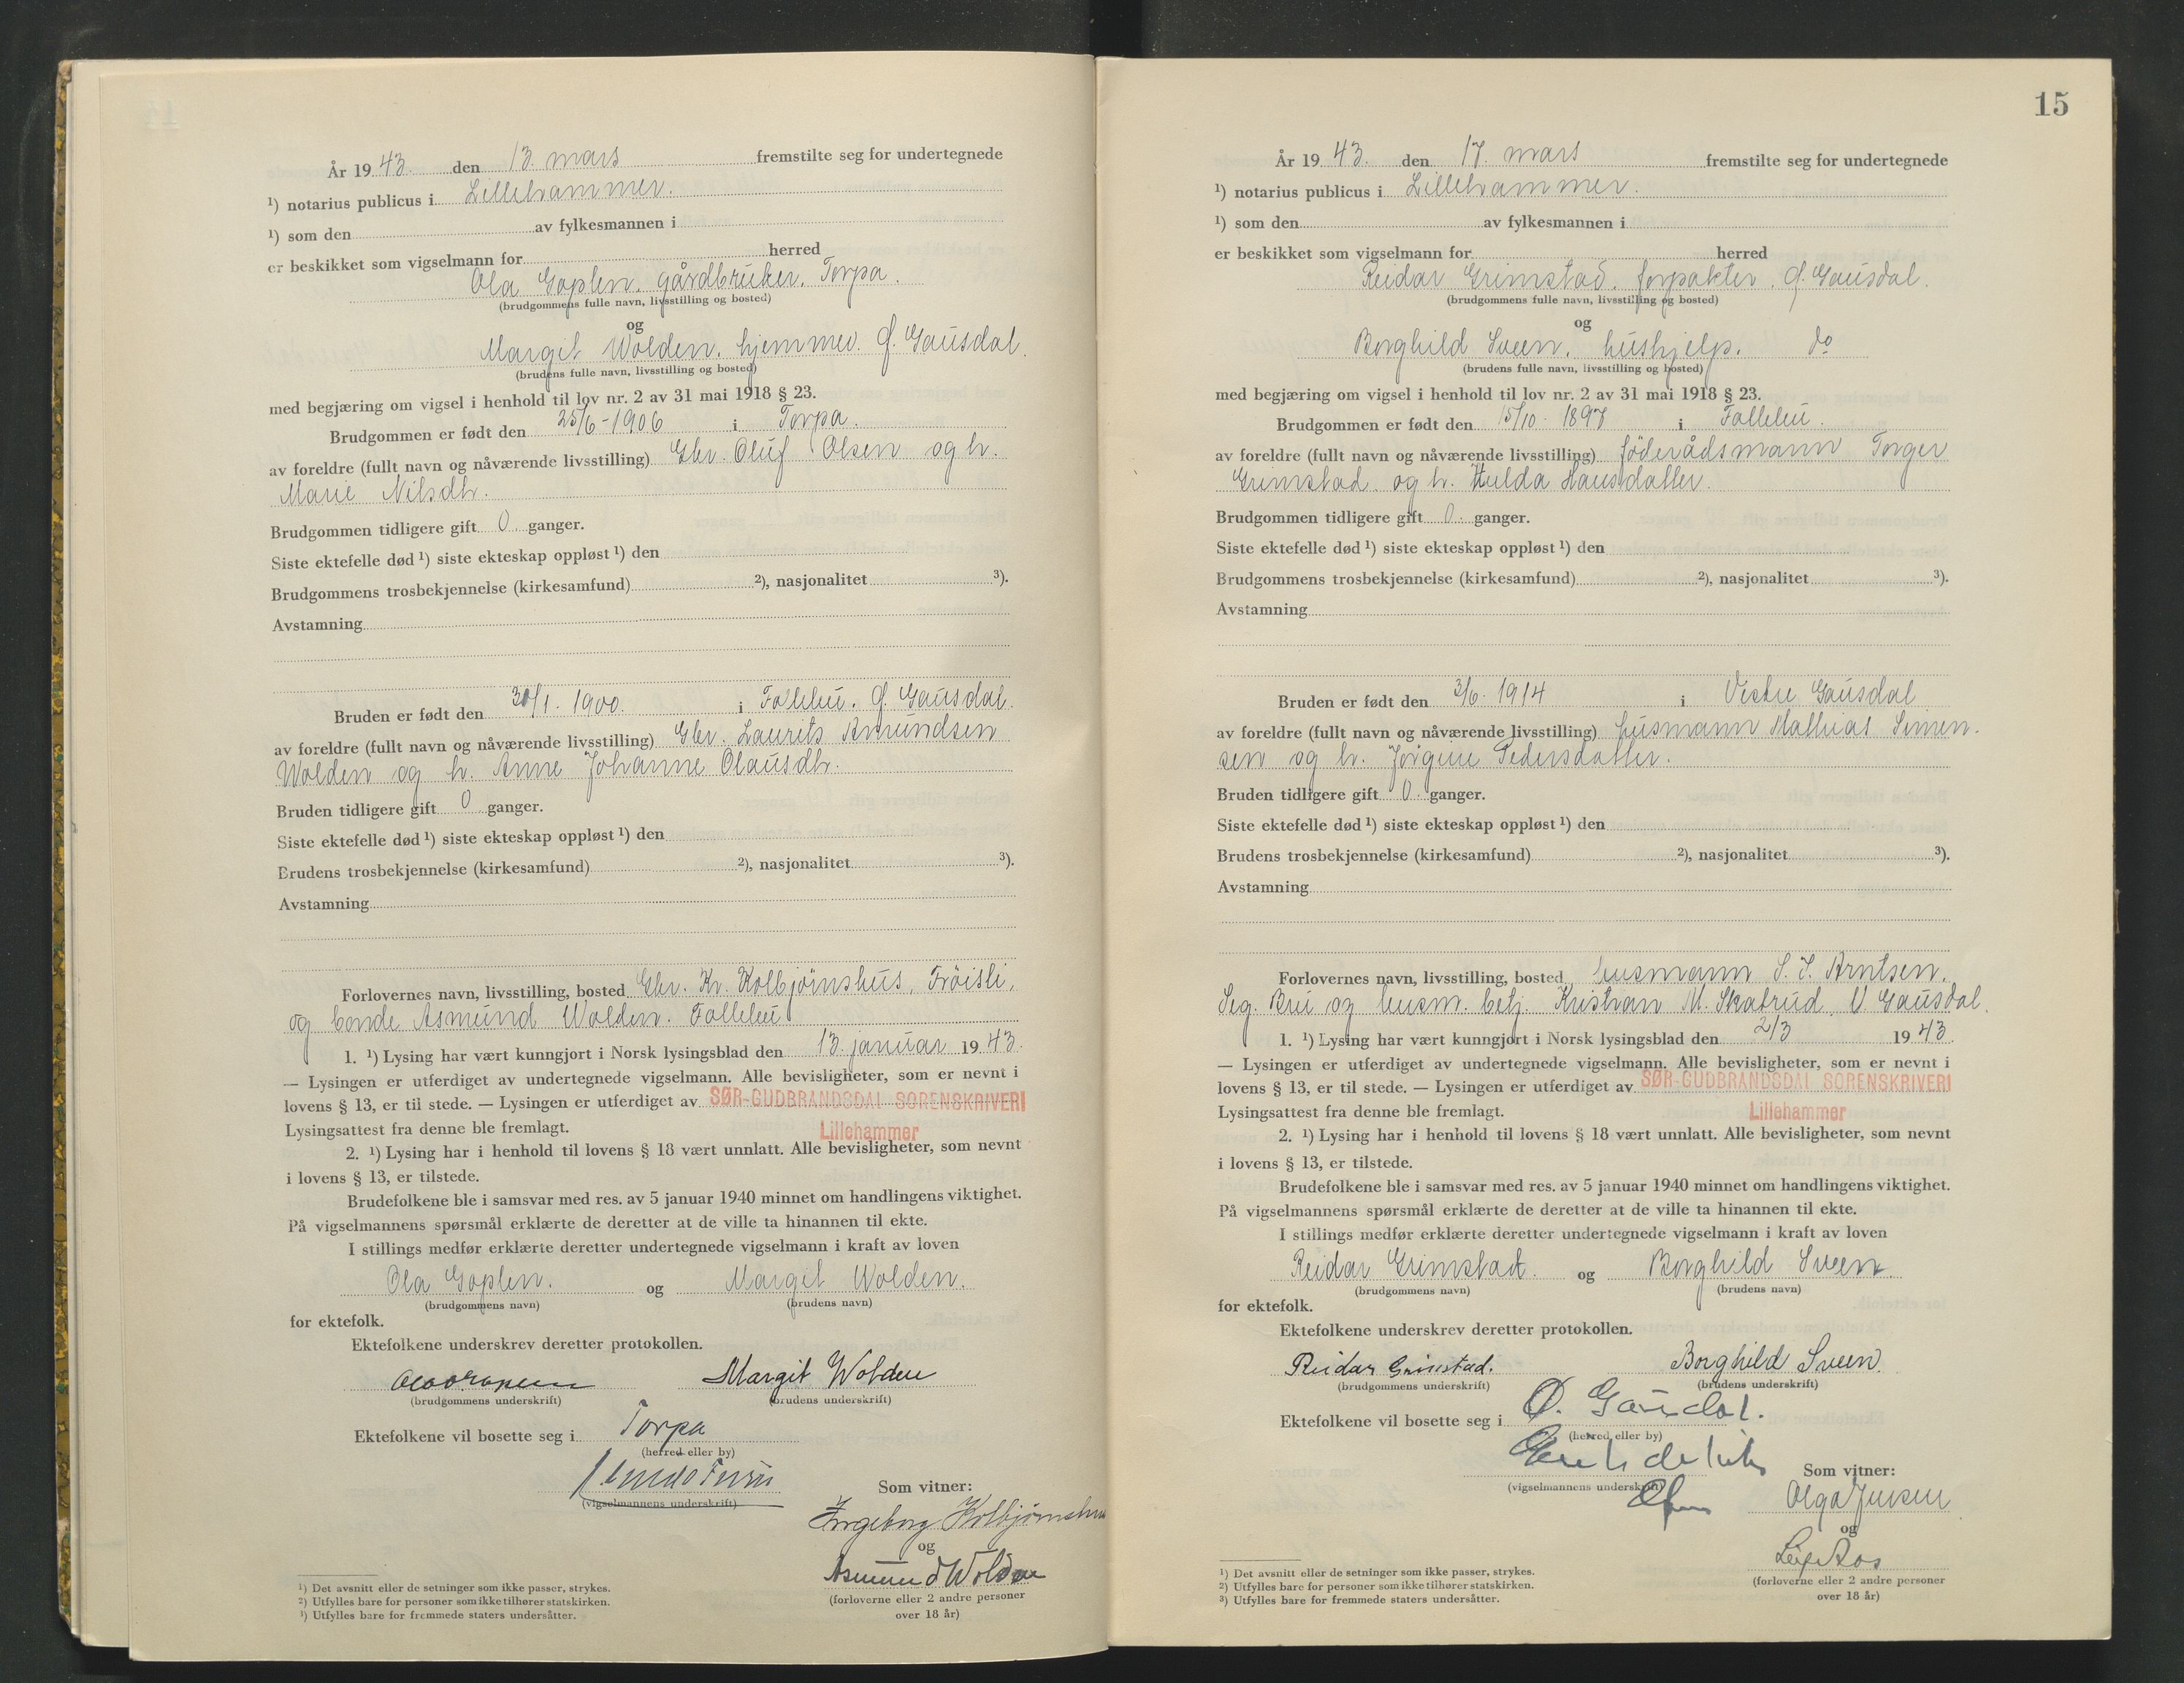 År 19 43. den 13. mars fremstilte seg for undertegnede
¹) notarius publicus i Lillehammer.
¹) som den av fylkesmannen i
er beskikket som vigselmann for herred
Ola Goplen, gårdbruker, Torpa.
(brudgommens fulle navn, livsstilling og bosted)
og
Margit Wolden, hjemmev. Ø. Gausdal.
(brudens fulle navn, livsstilling og bosted)
med begjæring om vigsel i henhold til lov nr. 2 av 31 mai 1918 § 23.
Brudgommen er født den 25/6-1906 i Torpa.
av foreldre (fullt navn og nåværende livsstilling) Gbr. Oluf Olsen og h.
Marie Nilsdtr.
Brudgommen tidligere gift 0 ganger.
Siste ektefelle død ¹) siste ekteskap oppløst ¹) den
Brudgommens trosbekjennelse (kirkesamfund) ²), nasjonalitet ³).
Avstamning
Bruden er født den 30/1. 1900. i Follebu, Ø. Gausdal.
av foreldre (fullt navn og nåværende livsstilling) Gbr. Laurits Amundsen
Wolden og h. Anne Johanne Olausdtr.
Bruden tidligere gift 0 ganger.
Siste ektefelle død ¹) siste ekteskap oppløst ¹) den
Brudens trosbekjennelse (kirkesamfund) ²), nasjonalitet ³).
Avstamning
Forlovernes navn, livsstilling, bosted Gbr. Kr. Kolbjørnshus, Frøisli,
og bonde Asmund Wolden. Follebu
1. ¹) Lysing har vært kunngjort i Norsk lysingsblad den 13. januar 19 43.
— Lysingen er utferdiget av undertegnede vigselmann. Alle bevisligheter, som er nevnt i
lovens § 13, er til stede. — Lysingen er utferdiget av SØR-GUDBRANDSDAL SORENSKRIVERI
Lysingsattest fra denne ble fremlagt. Lillehammer
2. ¹) Lysing har i henhold til lovens § 18 vært unnlatt. Alle bevisligheter, som nevnt
i lovens § 13, er tilstede.
Brudefolkene ble i samsvar med res. av 5 januar 1940 minnet om handlingens viktighet.
På vigselmannens spørsmål erklærte de deretter at de ville ta hinannen til ekte.
I stillings medfør erklærte deretter undertegnede vigselmann i kraft av loven
Ola Goplen. og Margit Wolden.
(brudgommens navn) (brudens navn)
for ektefolk.
Ektefolkene underskrev deretter protokollen.
Margit Wolden
(brudgommens underskrift) (brudens underskrift)
Ektefolkene vil bosette seg i Torpa
(herred eller by)
(vigselmannens underskrift)
Som vitner:
Ingeborg Kolbjørnshus
og
Asmund Wolden
(forloverne eller 2 andre personer
over 18 år)
¹) Det avsnitt eller de setninger som ikke passer, strykes.
²) Utfylles bare for personer som ikke tilhører statskirken.
³) Utfylles bare for fremmede staters undersåtter.
15
År 19 43. den 17. mars fremstilte seg for undertegnede
¹) notarius publicus i Lillehammer.
¹) som den av fylkesmannen i
er beskikket som vigselmann for herred
Reidar Grimstad, forpakter, Ø. Gausdal.
(brudgommens fulle navn, livsstilling og bosted)
og
Borghild Sveen, hushjelp. do
(brudens fulle navn, livsstilling og bosted)
med begjæring om vigsel i henhold til lov nr. 2 av 31 mai 1918 § 23.
Brudgommen er født den 15/10 - 1897 i Follebu.
av foreldre (fullt navn og nåværende livsstilling) føderådsmann Torger
Grimstad og h. Hulda Hansdatter.
Brudgommen tidligere gift 0. ganger.
Siste ektefelle død ¹) siste ekteskap oppløst ¹) den
Brudgommens trosbekjennelse (kirkesamfund) ²), nasjonalitet ³).
Avstamning
Bruden er født den 3/6. 1914 i Vestre Gausdal
av foreldre (fullt navn og nåværende livsstilling) husmann Mathias Simen-
sen og h. Jørgine Pedersdatter.
Bruden tidligere gift 0. ganger.
Siste ektefelle død ¹) siste ekteskap oppløst ¹) den
Brudens trosbekjennelse (kirkesamfund) ²), nasjonalitet ³).
Avstamning
Forlovernes navn, livsstilling, bosted husmann S. J. Arntsen,
Seg. Bru og husm. betj. Kristian M. Skatrud, V. Gausdal.
1. ¹) Lysing har vært kunngjort i Norsk lysingsblad den 2/3 19 43
— Lysingen er utferdiget av undertegnede vigselmann. Alle bevisligheter, som er nevnt i
lovens § 13, er til stede. — Lysingen er utferdiget av SØR-GUDBRANDSDAL SORENSKRIVERI
Lysingsattest fra denne ble fremlagt. Lillehammer
2. ¹) Lysing har i henhold til lovens § 18 vært unnlatt. Alle bevisligheter, som nevnt
i lovens § 13, er tilstede.
Brudefolkene ble i samsvar med res. av 5 januar 1940 minnet om handlingens viktighet.
På vigselmannens spørsmål erklærte de deretter at de ville ta hinannen til ekte.
I stillings medfør erklærte deretter undertegnede vigselmann i kraft av loven
Reidar Grimstad. og Borghild Sveen
(brudgommens navn) (brudens navn)
for ektefolk.
Ektefolkene underskrev deretter protokollen.
Reidar Grimstad. Borghild Sveen.
(brudgommens underskrift) (brudens underskrift)
Ektefolkene vil bosette seg i Ø. Gausdal.
(herred eller by)
(vigselmannens underskrift)
Som vitner:
Olga Jensen
og
Leif Aos
(forloverne eller 2 andre personer
over 18 år)
¹) Det avsnitt eller de setninger som ikke passer, strykes.
²) Utfylles bare for personer som ikke tilhører statskirken.
³) Utfylles bare for fremmede staters undersåtter.